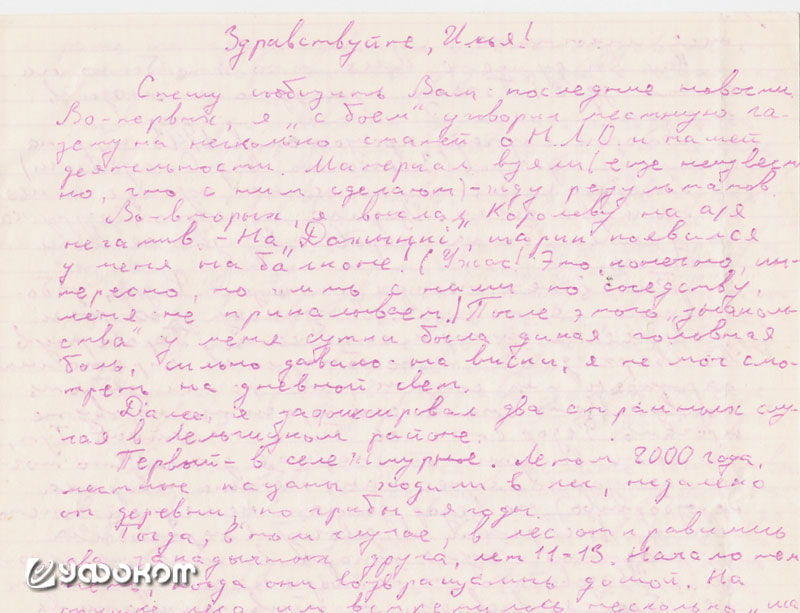 Здравствуйте, Илья!
Спешу сообщить Вам последние новости.
Во-первых, я „с боем" уговорил местную га-
зету на несколько статей о Н.Л.О. и нашей
деятельности. Материал взяли (еще неизвест-
но, что с ним сделают) - жду результатов.
Во-вторых, я выслал Королеву на а/я
негатив. - На „Дажынкі", шарик появился
у меня на балконе! (Ужас! Это, конечно, ин-
тересно, но жить с ними по соседству,
меня не прикалывает.) После этого „знаком-
ства" у меня сутки была дикая головная
боль, сильно давило на виски, я не мог смо-
треть на дневной свет.
Далее, я зафиксировал два странных слу-
чая в районе.
Первый - в селе Летом 2000 года,
местные пацаны ходили в лес, недалеко
от деревни, по грибы-ягоды.
Тогда, в том случае, в лес отправились
два закадычных друга, лет 11-13. Начало
когда они возвращались домой. На
им встретилось несколько
уфоком